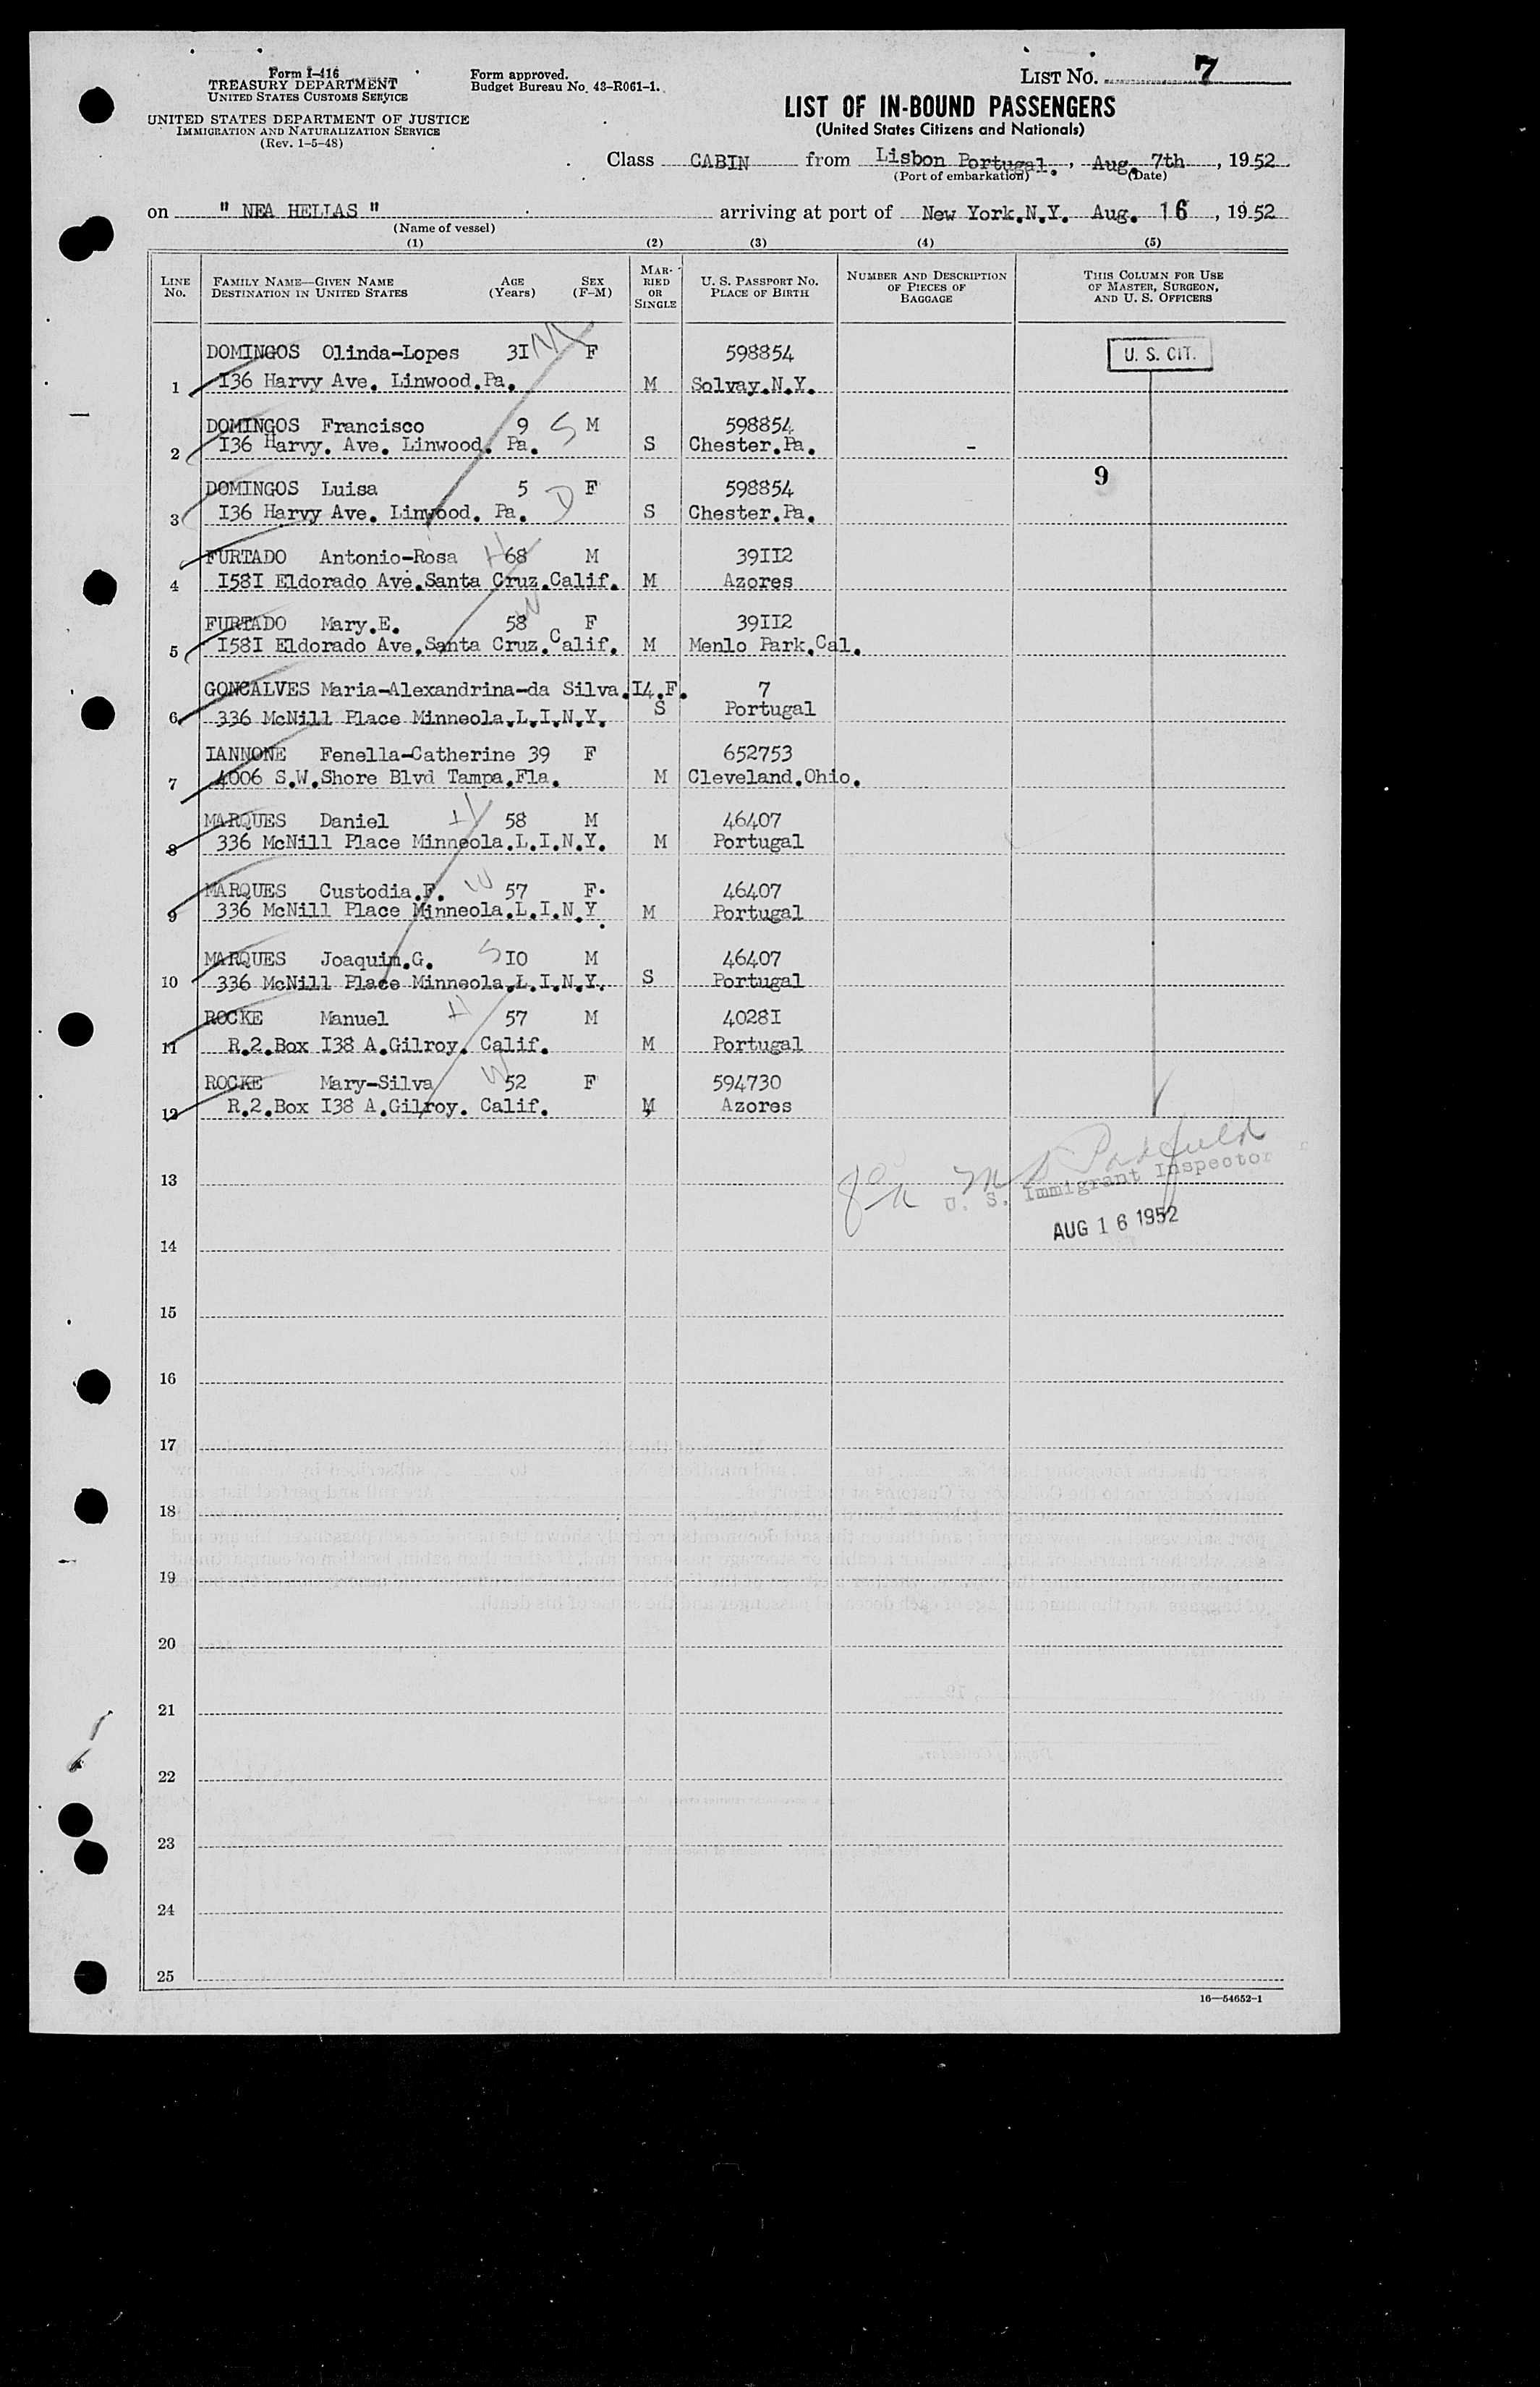 Form I-416
TREASURY DEPARTMENT
UNITED STATES CUSTOMS SERVICE
UNITED STATES DEPARTMENT OF JUSTICE
IMMIGRATION AND NATURALIZATION SERVICE
(Rev. 1-5-48)
Form approved.
Budget Bureau No. 43-R061-1.
LIST NO. 7
LIST OF IN-BOUND PASSENGERS
(United States Citizens and Nationals)
Class CABIN from Lisbon Portugal. , Aug. 7th , 1952
(Port of embarkation) (Date)
on " NEA HELLAS " arriving at port of New York.N.Y. Aug. 16 , 1952
(Name of vessel)
(1) (2) (3) (4) (5)
LINE NO.
FAMILY NAME—GIVEN NAME
DESTINATION IN UNITED STATES
AGE (Years)
SEX (F-M)
MARRIED OR SINGLE
U. S. PASSPORT NO.
PLACE OF BIRTH
NUMBER AND DESCRIPTION OF PIECES OF BAGGAGE
THIS COLUMN FOR USE OF MASTER, SURGEON, AND U. S. OFFICERS
DOMINGOS Olinda-Lopes 3I M F 598854 U. S. CIT.
1 I36 Harvy Ave. Linwood.Pa. M Solvay.N.Y.
DOMINGOS Francisco 9 S M 598854
2 I36 Harvy. Ave. Linwood. Pa. S Chester.Pa. -
DOMINGOS Luisa 5 D F 598854 9
3 I36 Harvy Ave. Linwood. Pa. S Chester.Pa.
FURTADO Antonio-Rosa H 68 M 39II2
4 I58I Eldorado Ave.Santa Cruz.Calif. M Azores
FURTADO Mary.E. 58 W F 39II2
5 I58I Eldorado Ave.Santa Cruz.Calif. M Menlo Park.Cal.
GONCALVES Maria-Alexandrina-da Silva.I4.F. 7
6 336 McNill Place Minneola.L.I.N.Y. S Portugal
IANNONE Fenella-Catherine 39 F 652753
7 4006 S.W.Shore Blvd Tampa.Fla. M Cleveland.Ohio.
MARQUES Daniel H 58 M 46407
8 336 McNill Place Minneola.L.I.N.Y. M Portugal
MARQUES Custodia.F. W 57 F. 46407
9 336 McNill Place Minneola.L.I.N.Y. M Portugal
MARQUES Joaquim.G. S I0 M 46407
10 336 McNill Place Minneola.L.I.N.Y. S Portugal
ROCKE Manuel H 57 M 4028I
11 R.2.Box I38 A.Gilroy. Calif. M Portugal
ROCKE Mary-Silva W 52 F 594730
12 R.2.Box I38 A.Gilroy. Calif. M Azores
13
U. S. Immigrant Inspector
AUG 16 1952
14
15
16
17
18
19
20
21
22
23
24
25
16—54652-1